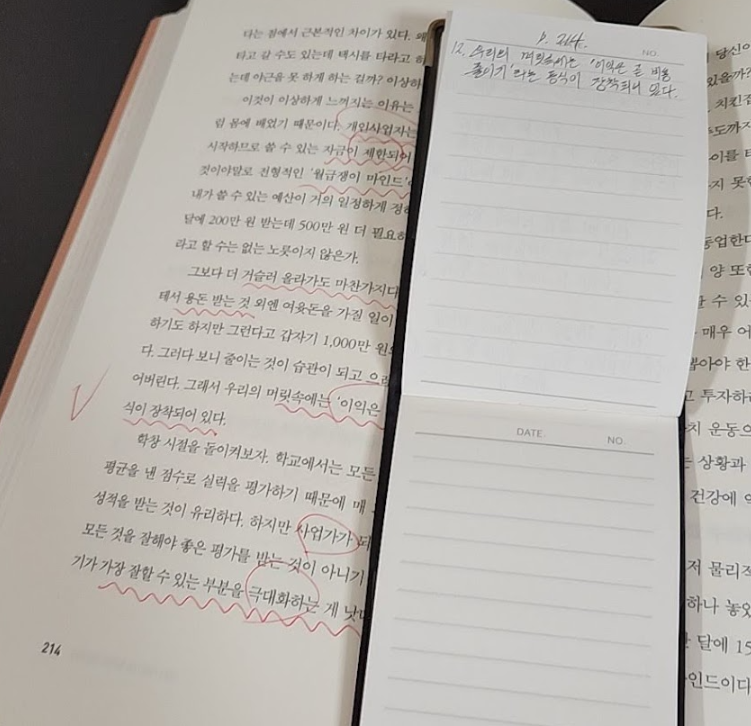 타는 점에서 근본적인 차이가 있다. 왜
타고 갈 수도 있는데 택시를 타라고 하
는데 야근을 못 하게 하는 걸까? 이상하
이것이 이상하게 느껴지는 이유는
럼 몸에 배었기 때문이다. 개인사업자는
시작하므로 쓸 수 있는 자금이 제한되어
것이야말로 전형적인 '월급쟁이 마인드'
내가 쓸 수 있는 예산이 거의 일정하게 정
달에 200만 원 받는데 500만 원 더 필요하
라고 할 수는 없는 노릇이지 않은가.
그보다 더 거슬러 올라가도 마찬가지다
테서 용돈 받는 것 외엔 여윳돈을 가질 일이
하기도 하지만 그런다고 갑자기 1,000만 원
다. 그러다 보니 줄이는 것이 습관이 되고 으레
어버린다. 그래서 우리의 머릿속에는 '이익은
식이 장착되어 있다.
학창 시절을 돌이켜보자. 학교에서는 모든
평균을 낸 점수로 실력을 평가하기 때문에 매
성적을 받는 것이 유리하다. 하지만 사업가가 되
모든 것을 잘해야 좋은 평가를 받는 것이 아니기
기가 가장 잘할 수 있는 부분을 극대화하는 게 낫다
214
p. 214.
NO.
12. 우리의 머릿속에는 '이익은 곧 비용
줄이기'라는 등식이 장착되어 있다.
DATE.
NO.
당신이
있을까?
치킨집
도까지
이를 타
지 못한
다.
동업한다
양 또한
할 수 있
매우 어
뽑아야 한
고 투자하
치 운동으
는 상황과
건강에 악
저 물리적
하나 놓았
달에 15
인드이다